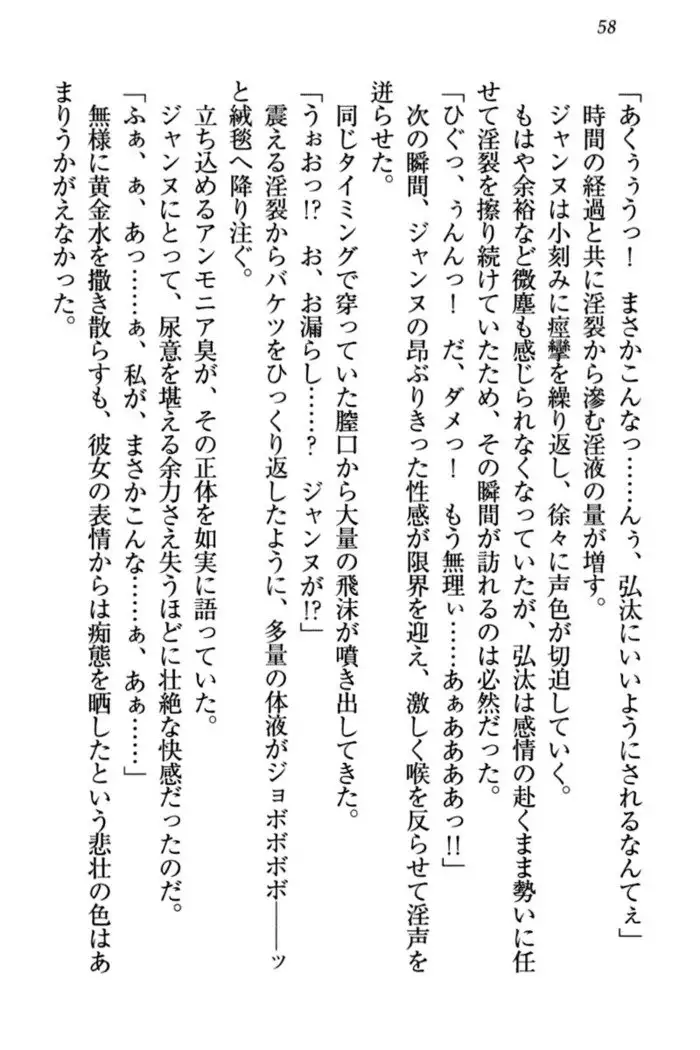 58
「あくぅぅうっ！　まさかこんなっ……んぅ、弘汰にいいようにされるなんてぇ」
時間の経過と共に淫裂から滲む淫液の量が増す。
ジャンヌは小刻みに痙攣を繰り返し、徐々に声色が切迫していく。
もはや余裕など微塵も感じられなくなっていたが、弘汰は感情の赴くまま勢いに任
せて淫裂を擦り続けていたため、その瞬間が訪れるのは必然だった。
「ひぐっ、ぅんんっ！　だ、ダメっ！　もう無理ぃ……あぁああああっ!!」
次の瞬間、ジャンヌの昂ぶりきった性感が限界を迎え、激しく喉を反らせて淫声を
迸らせた。
同じタイミングで穿っていた膣口から大量の飛沫が噴き出してきた。
「うぉおっ!?　お、お漏らし……？　ジャンヌが!?」
震える淫裂からバケツをひっくり返したように、多量の体液がジョボボボボ――ッ
と絨毯へ降り注ぐ。
立ち込めるアンモニア臭が、その正体を如実に語っていた。
ジャンヌにとって、尿意を堪える余力さえ失うほどに壮絶な快感だったのだ。
「ふぁ、ぁ、あっ……ぁ、私が、まさかこんな……ぁ、あぁ……」
無様に黄金水を撒き散らすも、彼女の表情からは痴態を晒したという悲壮の色はあ
まりうかがえなかった。